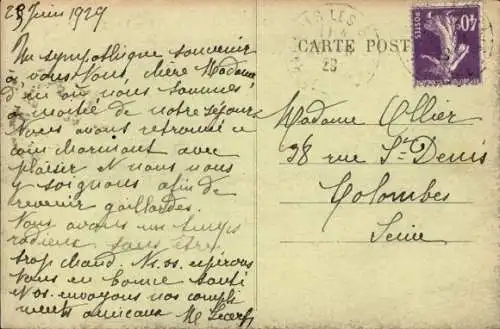 28 Juin 1929
Un sympathique souvenir
à vous tous, chère Madame
d'ici où nous sommes
à moitié de notre séjour
Nous avons retrouvé ce
coin charmant avec
plaisir & nous nous
y soignons afin de
revenir gaillardes.
Nous avons un temps
radieux sans être
trop chaud. Ns. os. espérons
tous en bonne santé
& vos. envoyons nos compli
ments amicaux
CARTE POST
28
POSTES
40c
Madame Ollier
38 rue St-Denis
Colombes
Seine